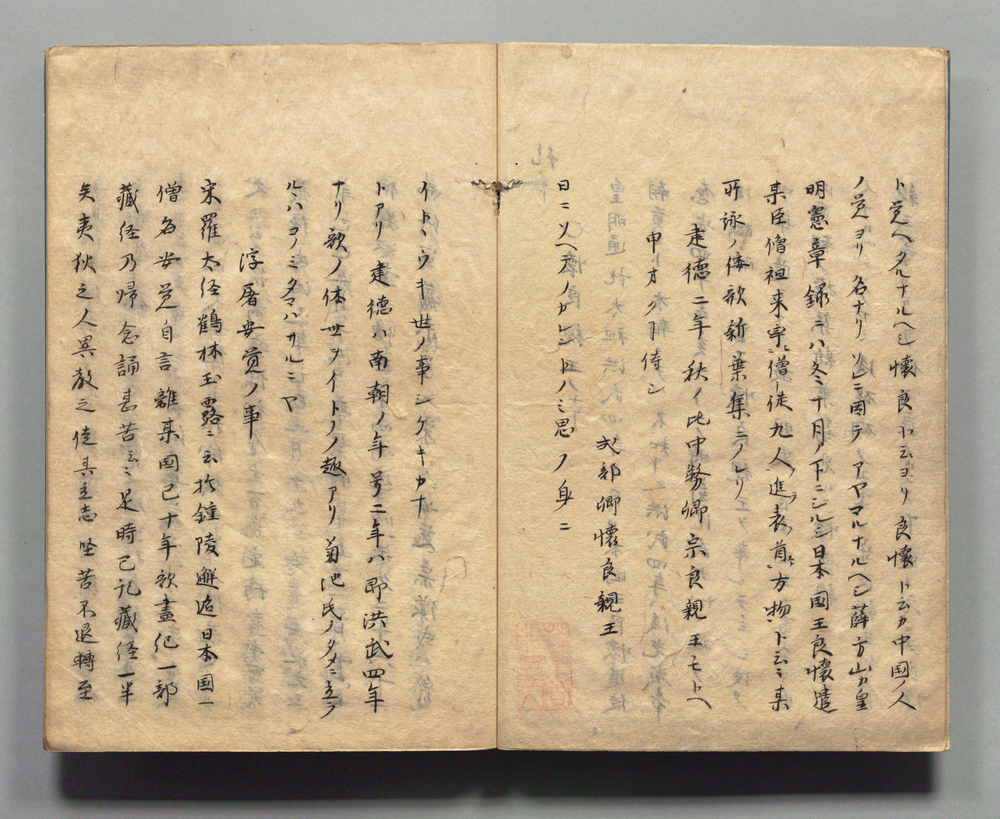 ト覚ヘタルナルヘシ懐良ト云ヨリ良懐ト云カ中国ノ人
ノ覚ヨリ名ナリ ソレ国テノアヤマルナルヘシ薛方山カ皇
明憲章録ニハ冬十月ノ下ニシルシ日本国王良懐遣
其臣僧祖来率僧徒九人進表貢方物ト云々某
所詠ノ倭歌新葉集ニノレリ
建徳二年ノ秋イ比中務卿宗良親王モトヘ
申トオクリ侍シ
式部卿懐良親王
日ニソヘテノカレントハミ思フ身ニ
イトヽウキ世ノ事シケキカナ
トアリ建徳ハ南朝ノ年号二年ハ即洪武四年
ナリ歌ノ体世ヲイトフノ趣アリ菊池氏ノタメニ立ラ
ルハヨノミタマハサルニヤ
浮屠安覚ノ事
宋羅大経鶴林玉露ニ云於鐘陵邂逅日本国一
僧名安覚自言離其国已十年欲盡紀一部
蔵経乃帰念誦甚苦云々是時已記蔵経一半
矣夷狄之人異教之徒其立志堅苦不退轉至